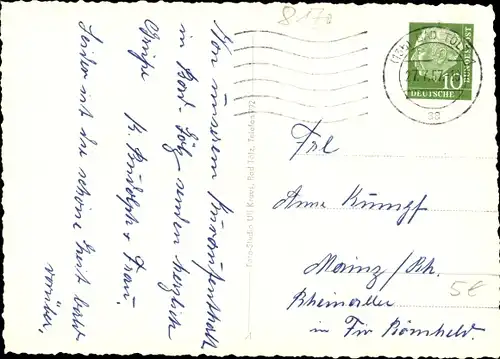 8170
Von unserem Kuraufenthalt
in Bad-Tölz senden herzliche
Grüße
K. Rudolph u. Frau.
Leider ist die schöne Zeit bald
vorüber.
Foto-Studio Ulf Bad Tölz, Telefon
BAD TÖLZ
57
aa
DEUTSCHE BUNDESPOST
10
Frl
Anne Kumpf
Mainz/Rh.
Rheinallee
in Fa Römheld.
5€